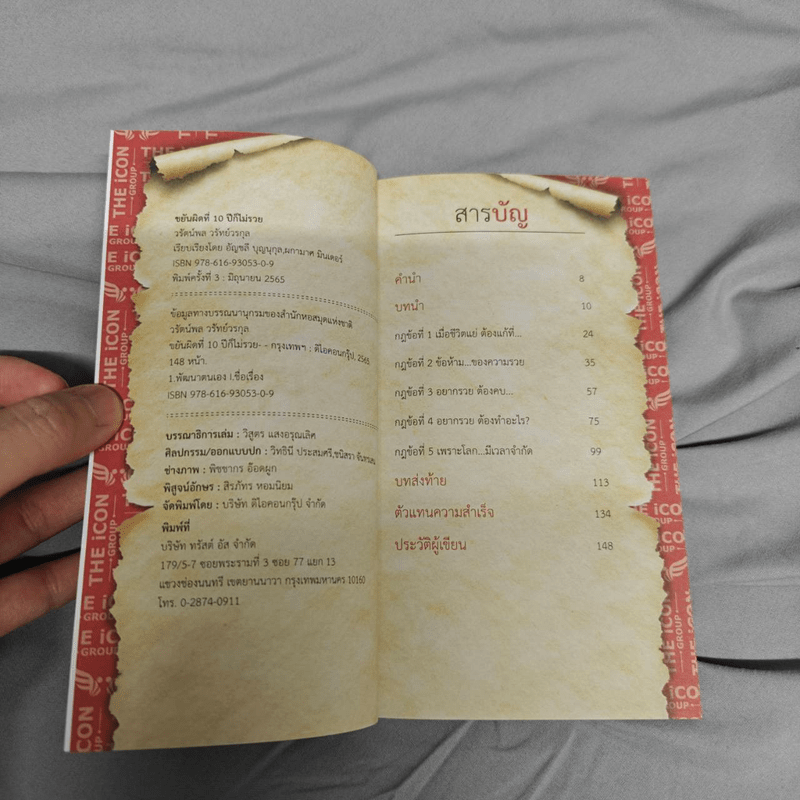 ขยันผิดที่ 10 ปีก็ไม่รวย
วรัตน์พล วรัทย์วรกุล
เรียบเรียงโดย อัญชลี บุญนุกูล,ผกามาศ มินเดอร์
ISBN 978-616-93053-0-9
พิมพ์ครั้งที่ 3 : มิถุนายน 2565
ข้อมูลทางบรรณานุกรมของสำนักหอสมุดแห่งชาติ
วรัตน์พล วรัทย์วรกุล
ขยันผิดที่ 10 ปีก็ไม่รวย- - กรุงเทพฯ : ดิไอคอนกรุ๊ป, 2565
148 หน้า.
1.พัฒนาตนเอง I.ชื่อเรื่อง
ISBN 978-616-93053-0-9
บรรณาธิการเล่ม : วิสูตร แสงอรุณเลิศ
ศิลปกรรม/ออกแบบปก : วิทธินี ประสมศรี,ชนิสรา
ช่างภาพ : พิชชากร อ๊อดผูก
พิสูจน์อักษร : สิรภัทร หอมนิยม
จัดพิมพ์โดย : บริษัท ดิไอคอนกรุ๊ป จำกัด
พิมพ์ที่
บริษัท ทรัสต์ อัส จำกัด
179/5-7 ซอยพระรามที่ 3 ซอย 77 แยก 13
แขวงช่องนนทรี เขตยานนาวา กรุงเทพมหานคร 10160
โทร. 0-2874-0911
สารบัญ
คำนำ 8
บทนำ 10
กฎข้อที่ 1 เมื่อชีวิตแย่ ต้องแก้ที่... 24
กฎข้อที่ 2 ข้อห้าม...ของความรวย 35
กฎข้อที่ 3 อยากรวย ต้องคบ... 57
กฎข้อที่ 4 อยากรวย ต้องทำอะไร? 75
กฎข้อที่ 5 เพราะโลก...มีเวลาจำกัด 99
บทส่งท้าย 113
ตัวแทนความสำเร็จ 134
ประวัติผู้เขียน 148
THE iCON
GROUP